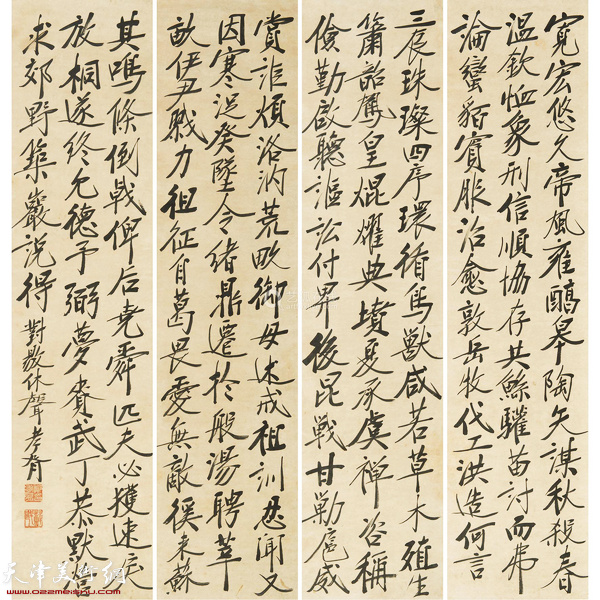 寬宏悠久帝風雍皋陶矢謀秋殺春
溫欽恤象刑信順協存共鯀驩苗討而弗
論蠻貊賓服治愈敦岳牧代工洪造何言
三辰珠璨四序環循鳥獸咸若草木殖生
簫韶鳳皇焜燿典墳夏承虞禪咨稱
儉勤啟聽謳訟付畀後昆戰甘勦扈威
賞詎煩洛汭荒畋御母述戒祖訓忍聞又
因寒浞癸墜令緒鼎遷於殷湯聘莘
畝伊尹戮力祖征自葛畏愛無敵徯來蘇
其鳴條倒戟俾后堯舜匹夫必獲速云
放桐遂終允德予弼夢賚武丁恭默言
求郊野築巖說得對敭休聲 孝胥
天津美術網
www.022meishu.com